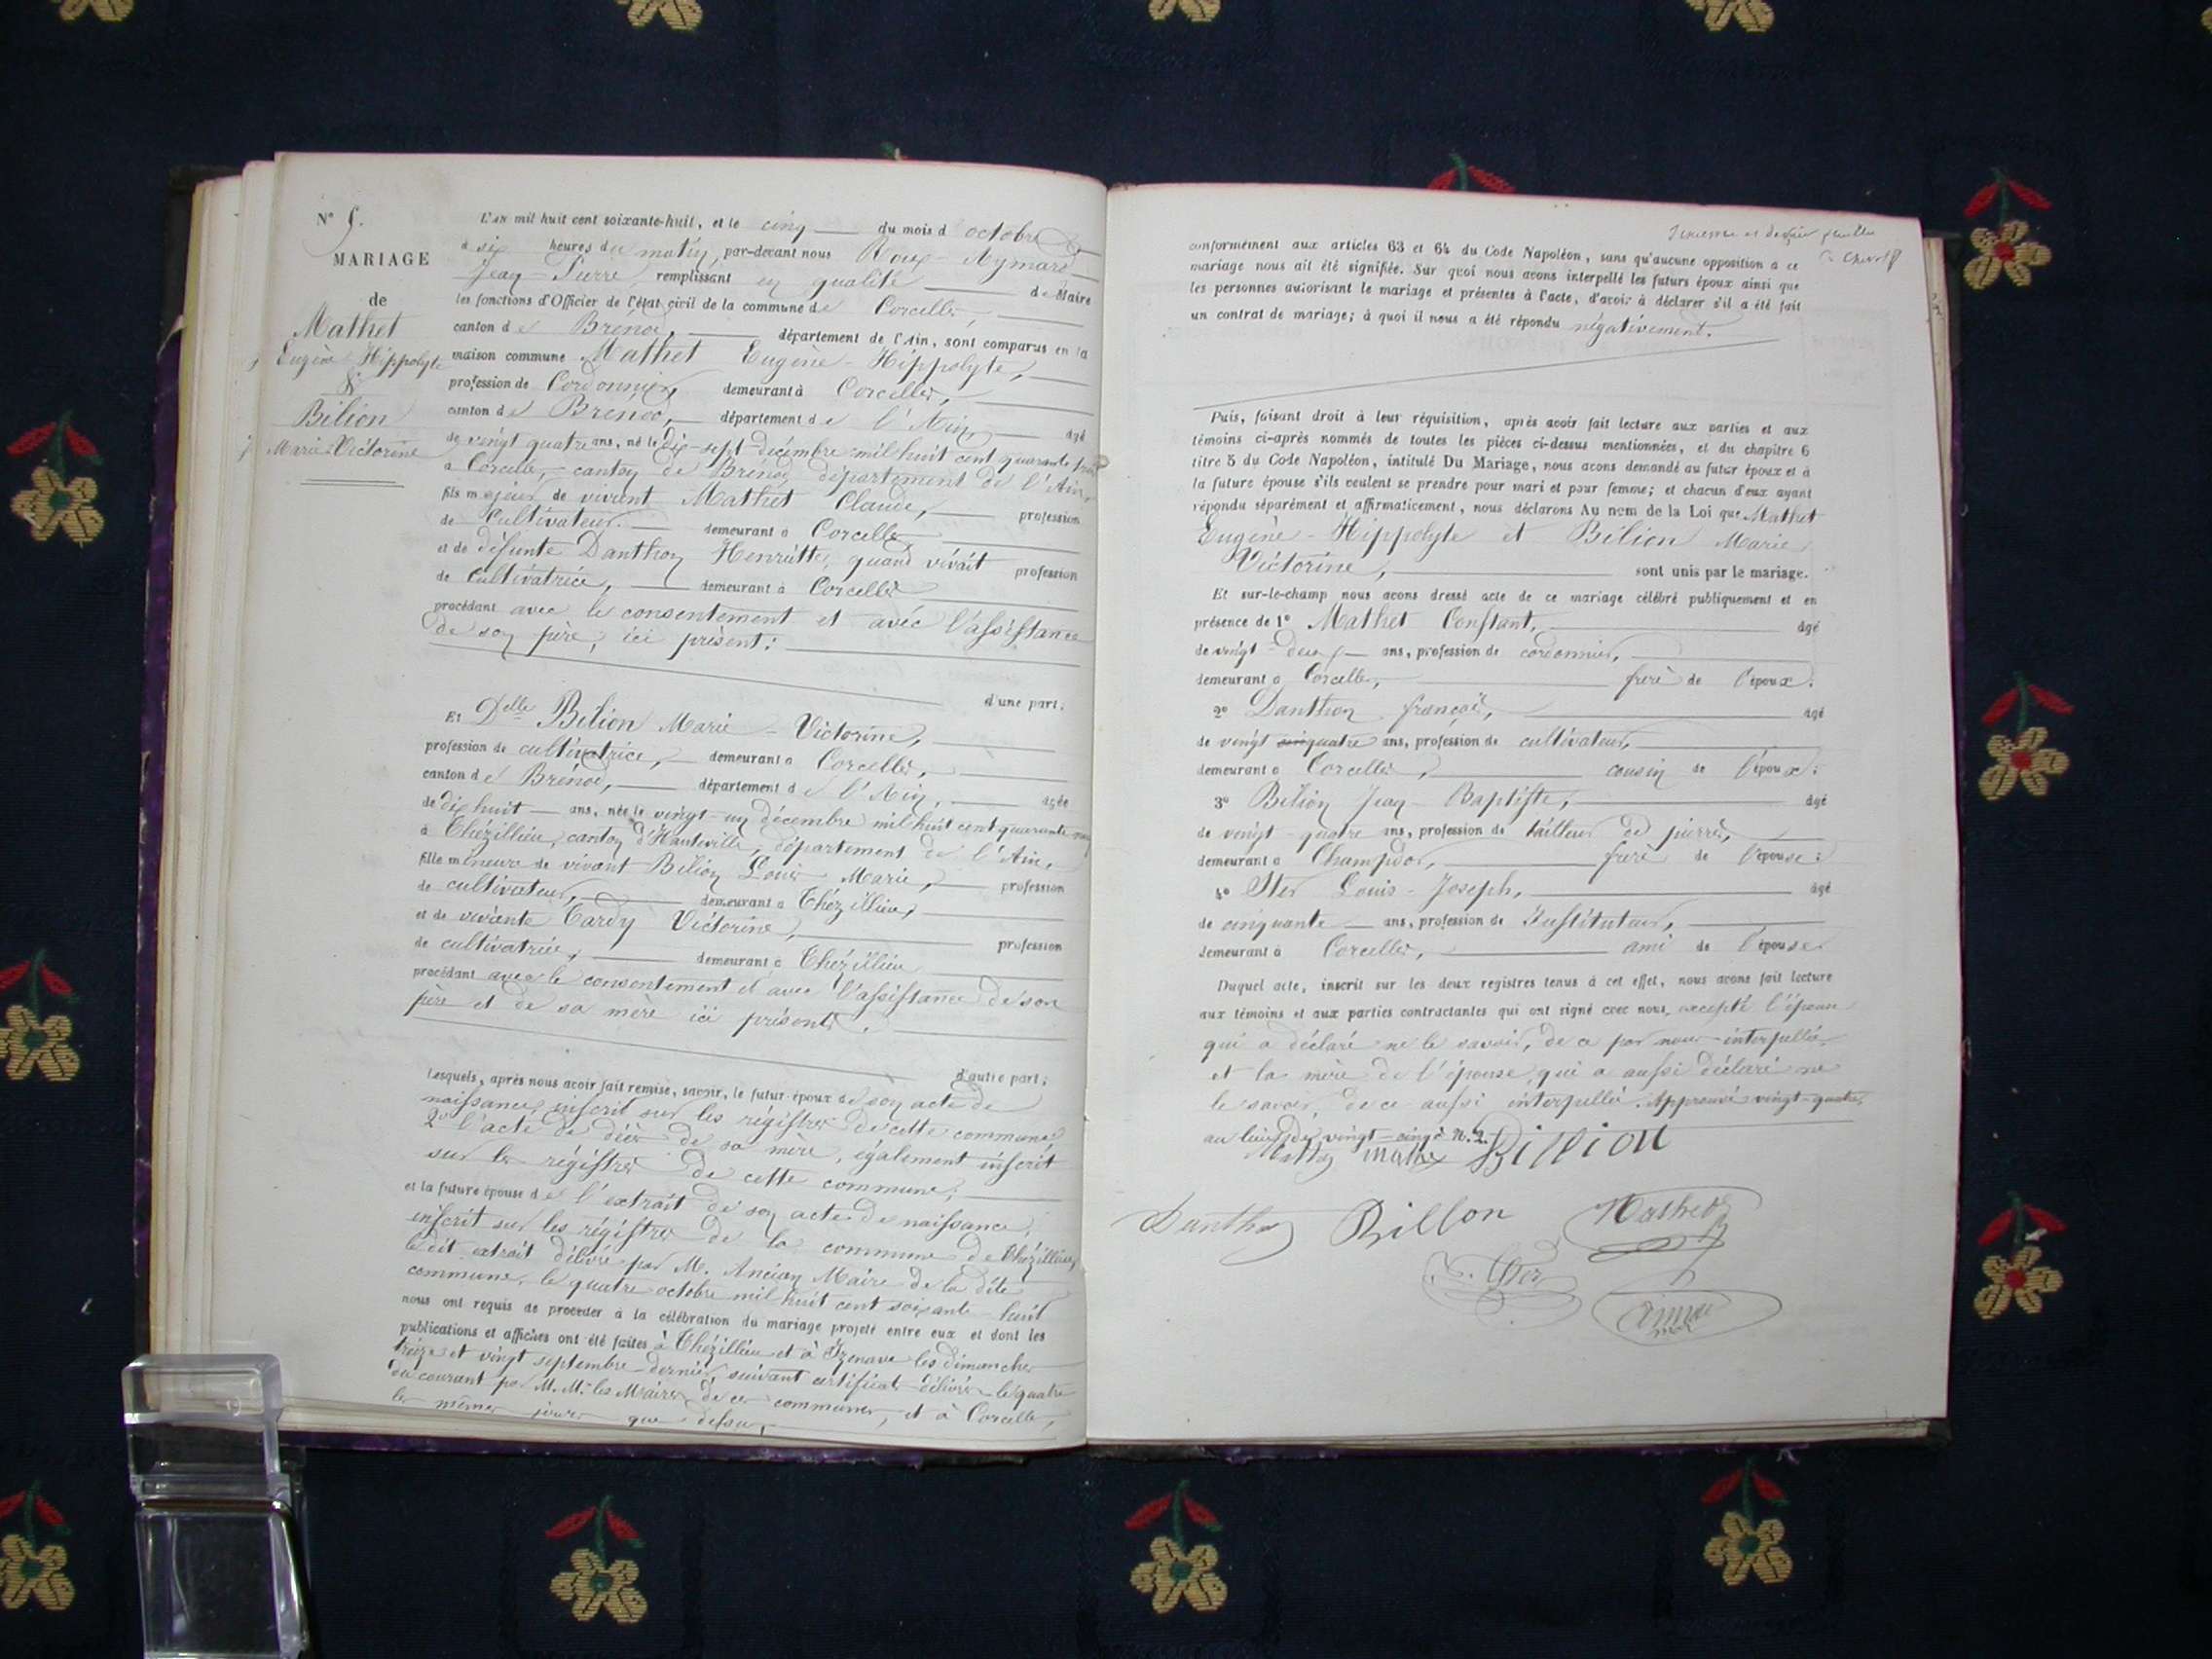 N° 5.
MARIAGE
de
Mathet
Eugène Hippolyte
&
Bilion
Marie Victorine
L'AN mil huit cent soixante-huit, et le cinq du mois d'octobre
à six heures du matin, par-devant nous Roux-Aymard
Jean-Pierre, remplissant en qualité de Maire
les fonctions d'Officier de l'état civil de la commune de Corcelles,
canton de Brénod, département de l'Ain, sont comparus en la
maison commune Mathet Eugène-Hippolyte,
profession de Cordonnier, demeurant à Corcelles,
canton de Brénod, département de l'Ain, âgé
de vingt quatre ans, né le dix-sept décembre mil huit cent quarante trois
à Corcelles, canton de Brénod, département de l'Ain,
fils majeur de vivant Mathet Claude, profession
de Cultivateur. demeurant à Corcelles
et de défunte Danthon Henriette, quand vivait profession
de Cultivatrice, demeurant à Corcelles
procédant avec le consentement et avec l'assistance
de son père, ici présent:
d'une part;
Et Delle Bilion Marie-Victorine,
profession de cultivatrice, demeurant à Corcelles,
canton de Brénod, département de l'Ain, âgée
de dix huit ans, née le vingt-un décembre mil huit cent quarante neuf
à Thézillieu, canton d'Hauteville, département de l'Ain,
fille mineure de vivant Bilion Louis Marie, profession
de cultivateur, demeurant à Thézillieu,
et de vivante Cardy Victorine, profession
de cultivatrice, demeurant à Thézillieu
procédant avec le consentement et avec l'assistance de son
père et de sa mère ici présents.
d'autre part;
Lesquels, après nous avoir fait remise, savoir, le futur époux de son acte de
naissance inscrit sur les régistres de cette commune,
2° l'acte de décès de sa mère, également inscrit
sur les régistres de cette commune;
et la future épouse de l'extrait de son acte de naissance,
inscrit sur les régistres de la commune de Thézillieu,
le dit extrait délivré par M. Ancian Maire de la dite
commune, le quatre octobre mil huit cent soixante-huit
nous ont requis de procéder à la célébration du mariage projeté entre eux et dont les
publications et affiches ont été faites à Thézillieu et à Izenave les dimanches
treize et vingt septembre dernier, suivant certificats délivrés le quatre
du courant par M.M. les Maires de ces communes, et à Corcelles,
les mêmes jours que dessus,
conformément aux articles 63 et 64 du Code Napoléon, sans qu'aucune opposition à ce
mariage nous ait été signifiée. Sur quoi nous avons interpellé les futurs époux ainsi que
les personnes autorisant le mariage et présentes à l'acte, d'avoir à déclarer s'il a été fait
un contrat de mariage; à quoi il nous a été répondu négativement.
Puis, faisant droit à leur réquisition, après avoir fait lecture aux parties et aux
témoins ci-après nommés de toutes les pièces ci-dessus mentionnées, et du chapitre 6
titre 5 du Code Napoléon, intitulé Du Mariage, nous avons demandé au futur époux et à
la future épouse s'ils veulent se prendre pour mari et pour femme; et chacun d'eux ayant
répondu séparément et affirmativement, nous déclarons Au nom de la Loi que Mathet
Eugène-Hippolyte et Bilion Marie
Victorine, sont unis par le mariage.
Et sur-le-champ nous avons dressé acte de ce mariage célébré publiquement et en
présence de 1° Mathet Constant, âgé
de vingt-deux ans, profession de cordonnier,
demeurant à Corcelles, frère de l'époux.
2° Danthon françois, âgé
de vingt quatre ans, profession de cultivateur,
demeurant à Corcelles, cousin de l'époux.
3° Bilion Jean-Baptiste, âgé
de vingt-quatre ans, profession de tailleur de pierres,
demeurant à Champdor, frère de l'épouse:
4° Ster Louis-Joseph, âgé
de cinquante ans, profession de Instituteur,
demeurant à Corcelles, ami de l'épouse.
Duquel acte, inscrit sur les deux registres tenus à cet effet, nous avons fait lecture
aux témoins et aux parties contractantes qui ont signé avec nous, excepté l'épouse
qui a déclaré ne le savoir, de ce par nous interpellée
et la mère de l'épouse qui a aussi déclaré ne
le savoir, de ce aussi interpellée. Approuvé vingt-quatre,
au lieu de vingt-cinq à N.2.
Mathet Billion
Danthon Billon Mathet
Ster